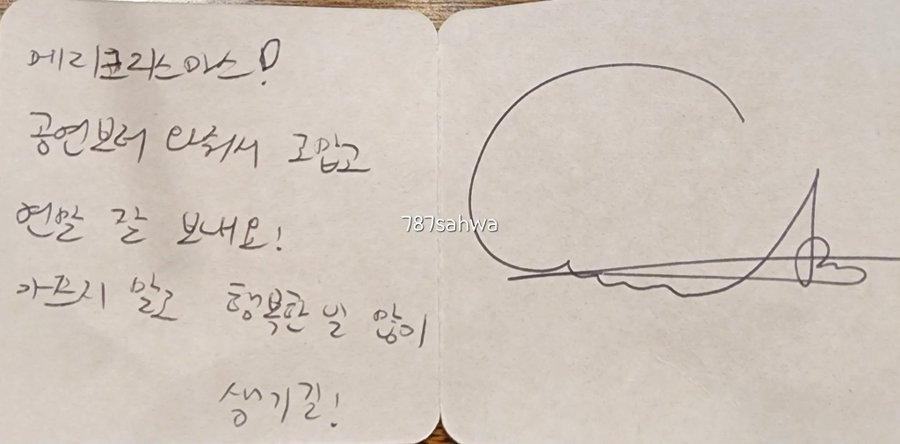 메리크리스마스!
공연보러 와줘서 고맙고
연말 잘 보내요!
아프지 말고 행복한 일 많이
생기길!
787sahwa